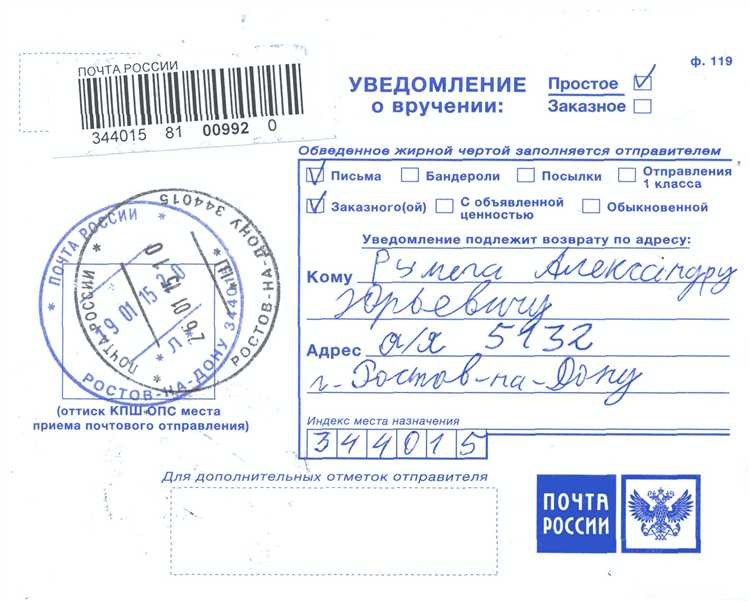 ф. 119
ПОЧТА РОССИИ
344015 81 00992 0
УВЕДОМЛЕНИЕ
о вручении:
Простое
Заказное
Обведенное жирной чертой заполняется отправителем
Письма Бандероли Посылки Отправления 1 класса
Заказного(ой) С объявленной ценностью Обыкновенной
Уведомление подлежит возврату по адресу:
Кому Румега Александру
Юрьевичу
Адрес а/я 5132
г. Ростов-на-Дону
Индекс места назначения
344015
* ПОЧТА РОССИИ *
РОСТОВ-НА-ДОНУ
19 01 15
* Л *
ПОЧТА РОССИИ *
РОСТОВ-НА-ДОНУ 344015
(оттиск КПШ ОПС места
приема почтового отправления)
Для дополнительных отметок отправителя
ПОЧТА
РОССИИ